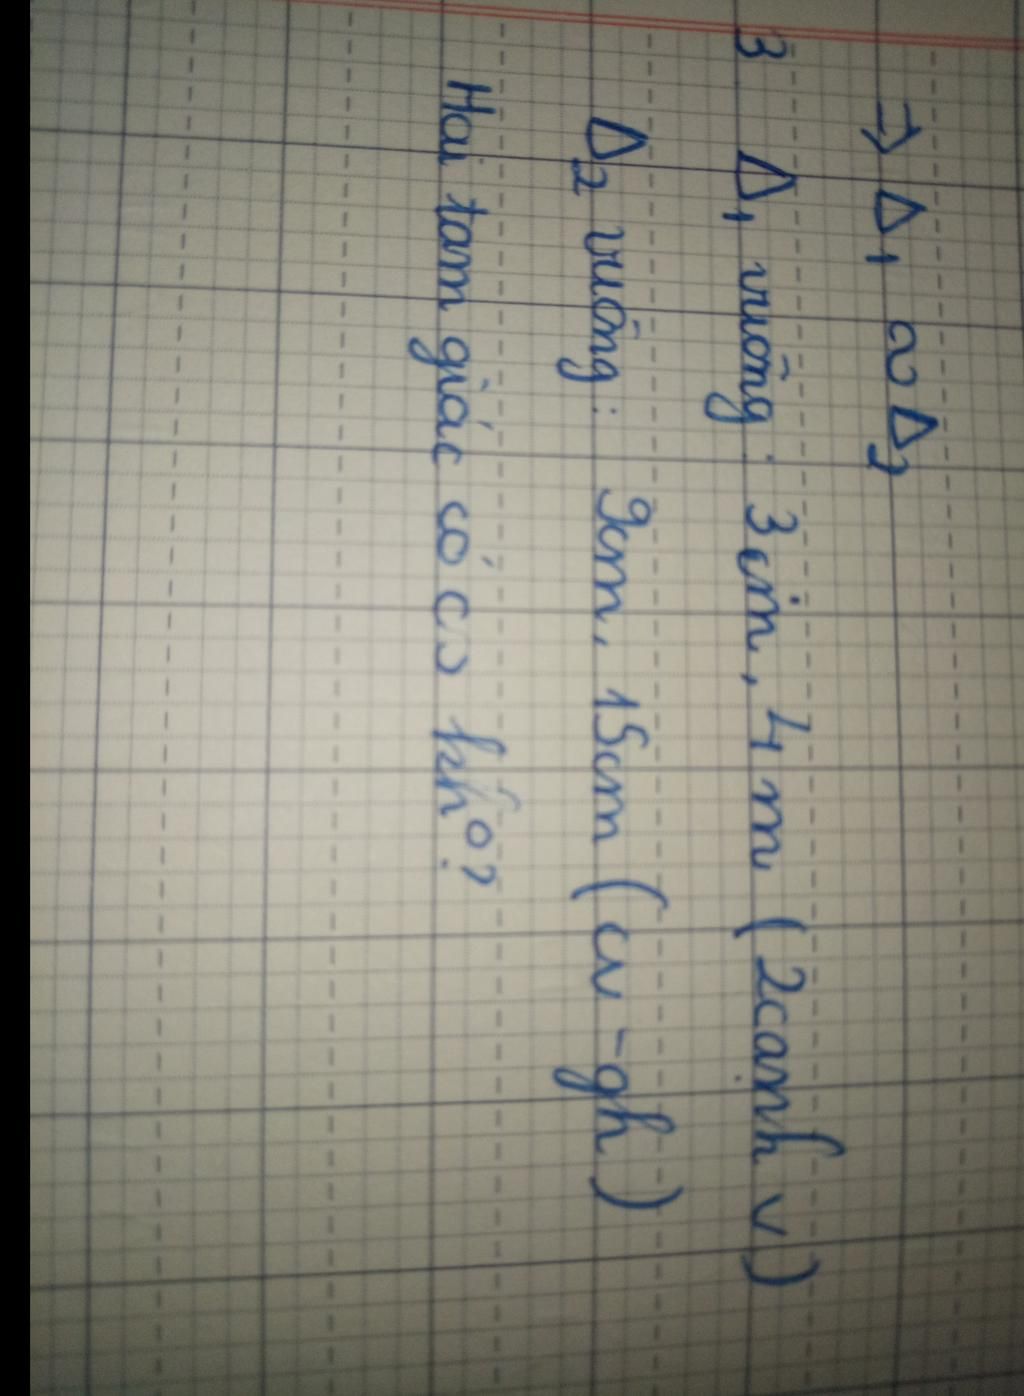 ⇒ Δ₁ ∽ Δ₂
3 Δ₁ vuông: 3cm, 4m (2cạnh v)
Δ₂ vuông: 9cm, 15cm (cv - gh)
Hai tam giác có c∽ kh°?